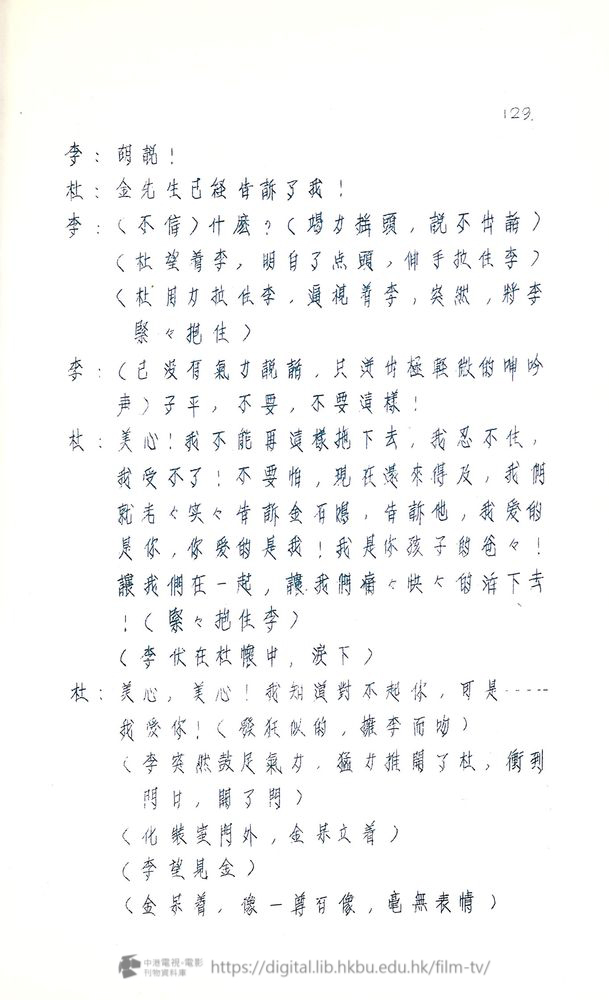 123.
李：胡說！
杜：金先生已経告訴了我！
李：（不信）什麼？（竭力搖頭，說不出話）
（杜望着李，明白了点頭，伸手拉住李）
（杜用力拉住李，逼視着李，突然，將李
緊々抱住）
李：（已没有氣力說話，只迸出極輕微的呻吟
声）子平，不要，不要這樣！
杜：美心！我不能再這樣拖下去，我忍不住，
我受不了！不要怕，現在還來得及，我們
就老々实々告訴金石鳴，告訴他，我爱的
是你，你爱的是我！我是你孩子的爸々！
讓我們在一起，讓我們痛々快々的活下去
！（緊々抱住李）
（李伏在杜懷中，淚下）
杜：美心，美心！我知道對不起你，可是……
我爱你！（發狂似的，擁李而吻）
（李突然鼓足氣力，猛力推開了杜，衝到
門口，開了門）
（化裝室門外，金呆立着）
（李望見金）
（金呆着，像一尊石像，毫無表情）
中港電視·電影
刊物資料庫
https://digital.lib.hkbu.edu.hk/film-tv/